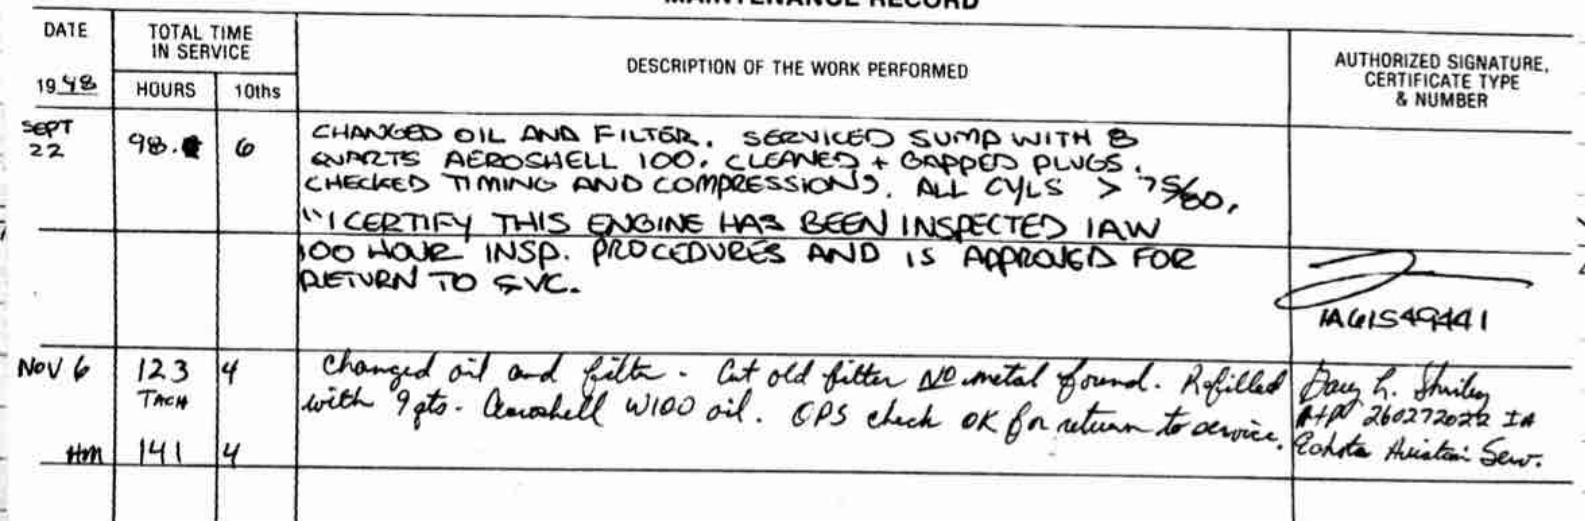 MAINTENANCE RECORD
DATE
TOTAL TIME
IN SERVICE
DESCRIPTION OF THE WORK PERFORMED
AUTHORIZED SIGNATURE,
CERTIFICATE TYPE
& NUMBER
19 48
HOURS
10ths
SEPT
22
98.
6
CHANGED OIL AND FILTER. SERVICED SUMP WITH 8
QUARTS AEROSHELL 100. CLEANED + GAPPED PLUGS.
CHECKED TIMING AND COMPRESSIONS. ALL CYLS > 75/80.
"I CERTIFY THIS ENGINE HAS BEEN INSPECTED IAW
100 HOUR INSP. PROCEDURES AND IS APPROVED FOR
RETURN TO SVC.
NOV 6
123
4
TACH
Changed oil and filter - Cut old filter NO metal found. Refilled
with 9 qts. Aeroshell W100 oil. OPS check OK for return to service.
A+P 260272022 IA
Aviation Serv.
HM
141
4